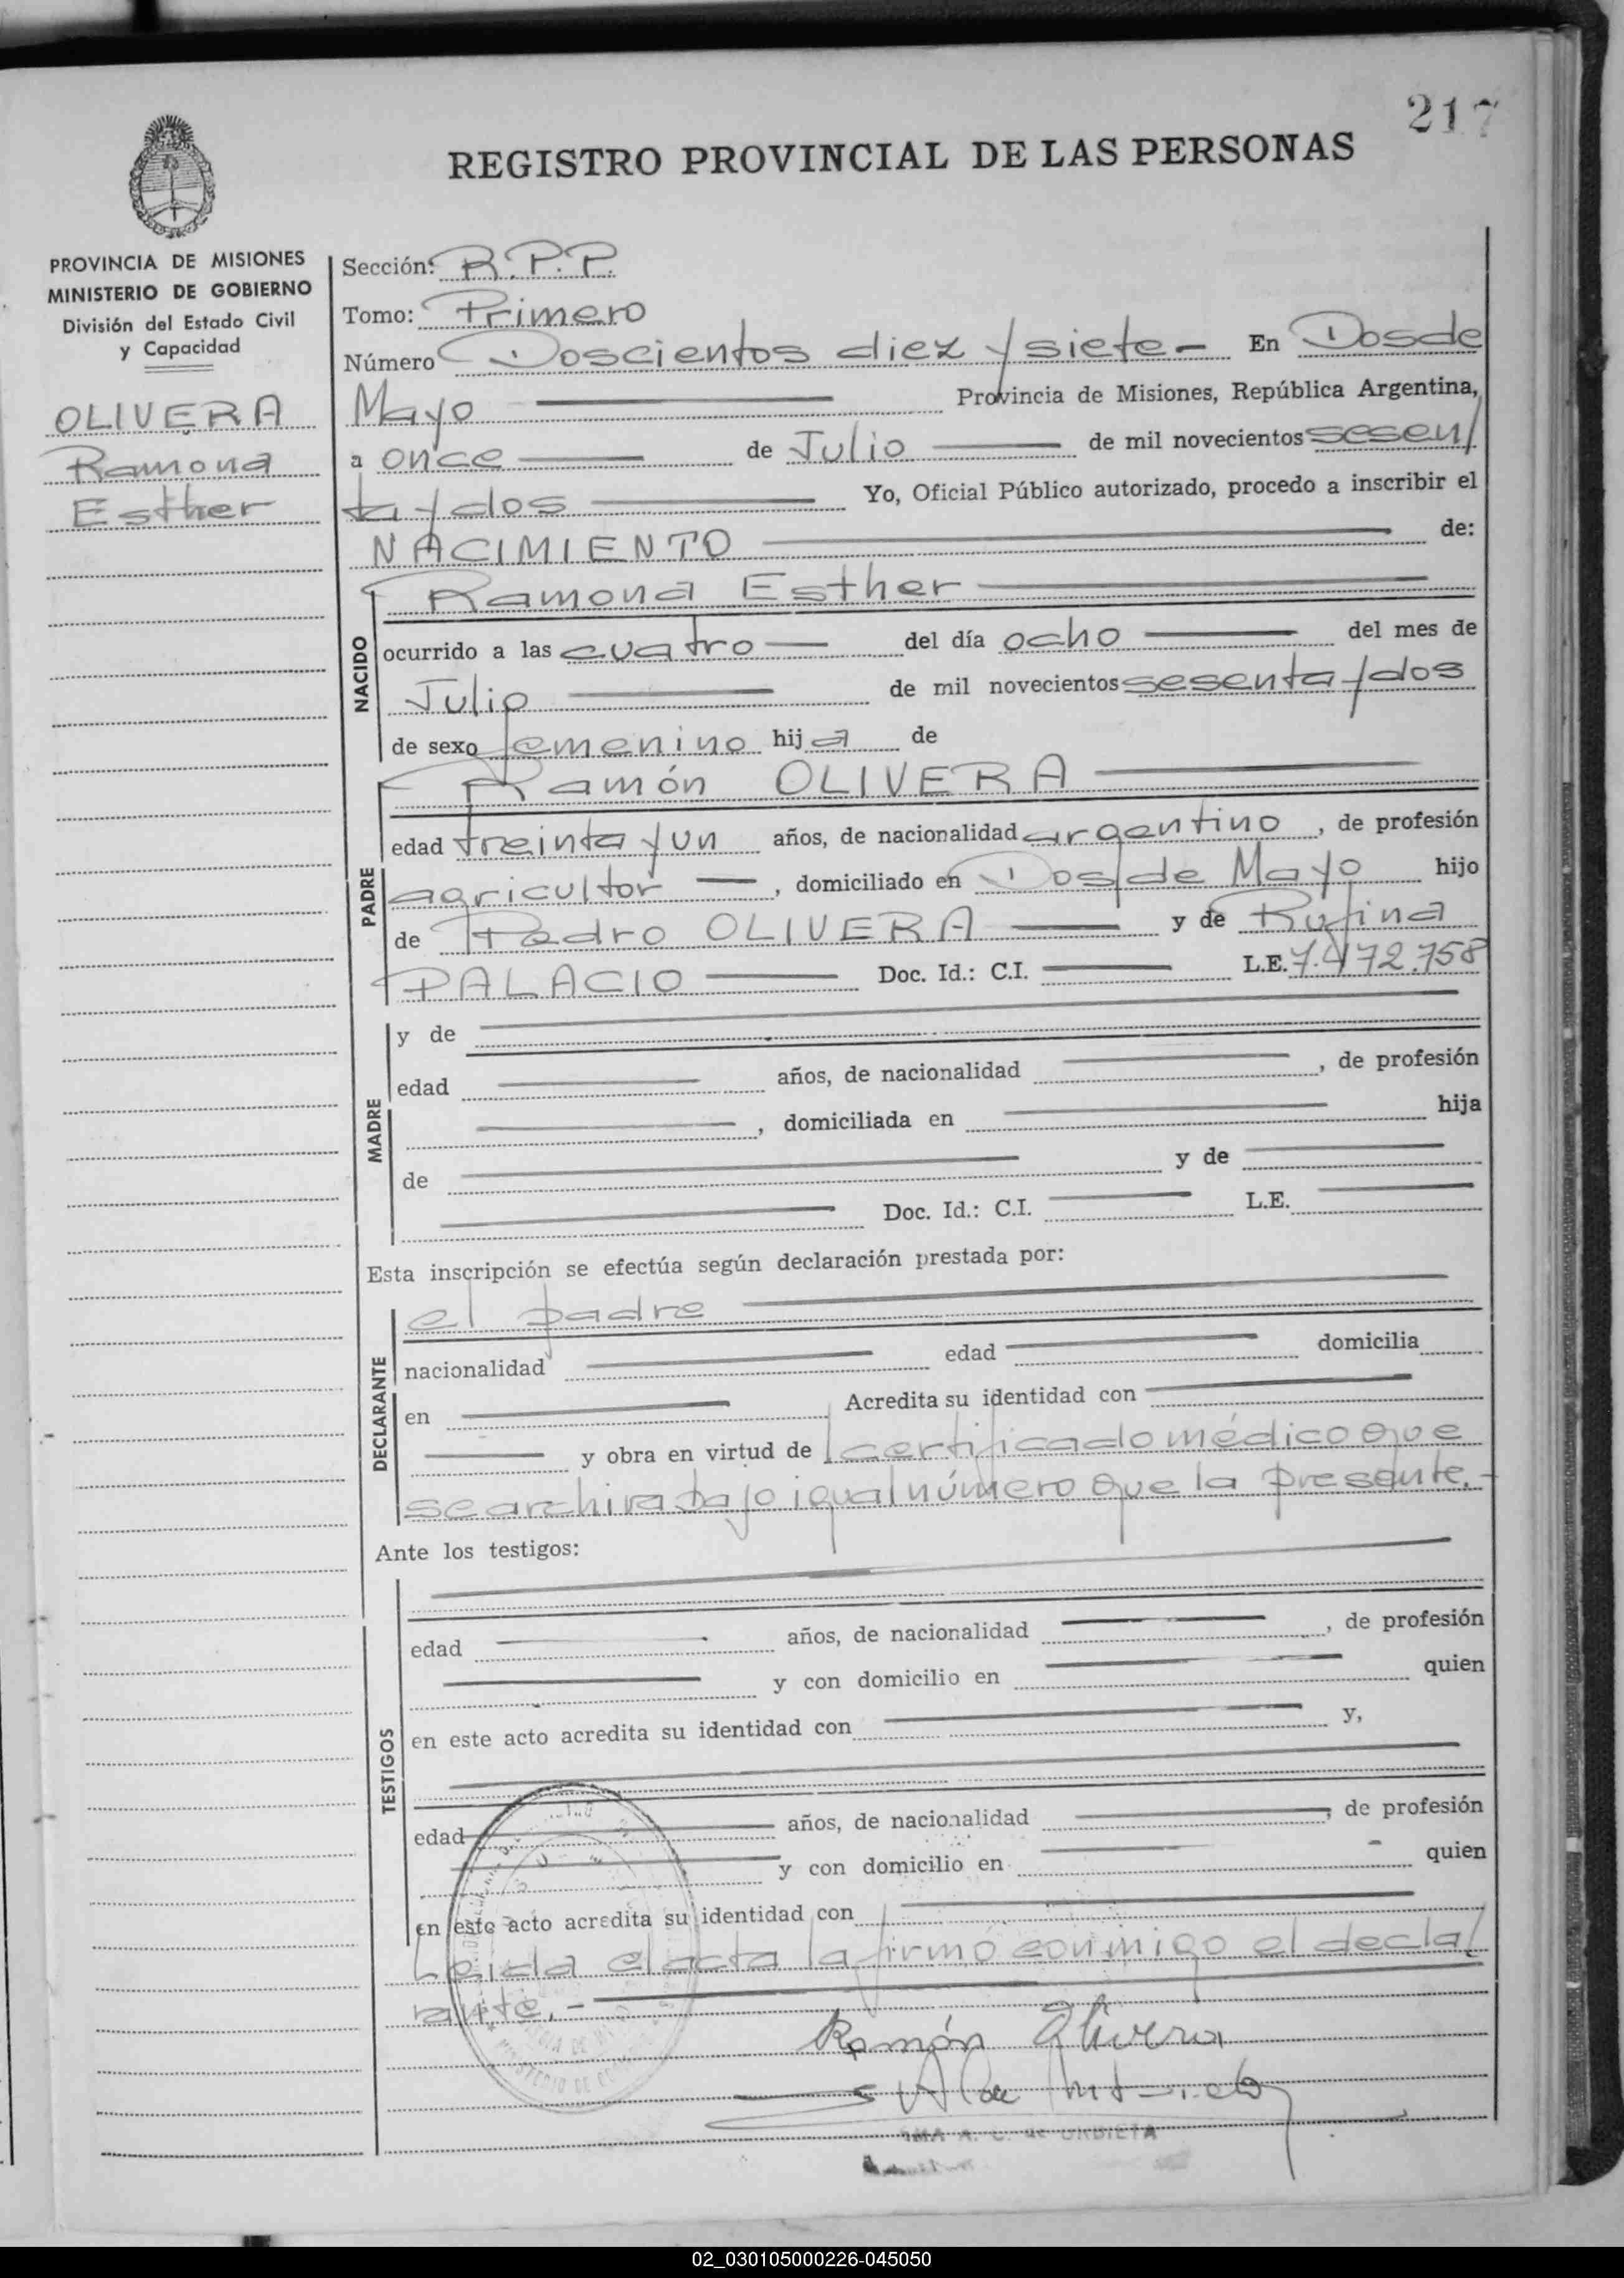 217
REGISTRO PROVINCIAL DE LAS PERSONAS
PROVINCIA DE MISIONES
MINISTERIO DE GOBIERNO
División del Estado Civil
y Capacidad
OLIVERA
Ramona
Esther
Sección: R.P.P.
Tomo: Primero
Número Doscientos diez y siete- En Dos de
Mayo Provincia de Misiones, República Argentina,
a once de Julio de mil novecientos sesen/
ta y dos Yo, Oficial Público autorizado, procedo a inscribir el
NACIMIENTO de:
NACIDO
Ramona Esther
ocurrido a las cuatro del día ocho del mes de
Julio de mil novecientos sesenta y dos
de sexo femenino hija de
PADRE
Ramón OLIVERA
edad treinta y un años, de nacionalidad argentino, de profesión
agricultor, domiciliado en Dos de Mayo hijo
de Pedro OLIVERA y de Rufina
PALACIO Doc. Id.: C.I. L.E. 7.472.758
MADRE
y de
edad años, de nacionalidad , de profesión
, domiciliada en hija
de y de
Doc. Id.: C.I. L.E.
Esta inscripción se efectúa según declaración prestada por:
DECLARANTE
el padre
nacionalidad edad domicilia
en Acredita su identidad con
y obra en virtud de certificado médico que
se archiva bajo igual número que la presente.-
Ante los testigos:
TESTIGOS
edad años, de nacionalidad , de profesión
y con domicilio en quien
en este acto acredita su identidad con y,
edad años, de nacionalidad , de profesión
y con domicilio en quien
en este acto acredita su identidad con
Leida el acta la firmó conmigo el decla/
rante.-
Ramón Olivera
A. C. de URDIETA
02_030105000226-045050